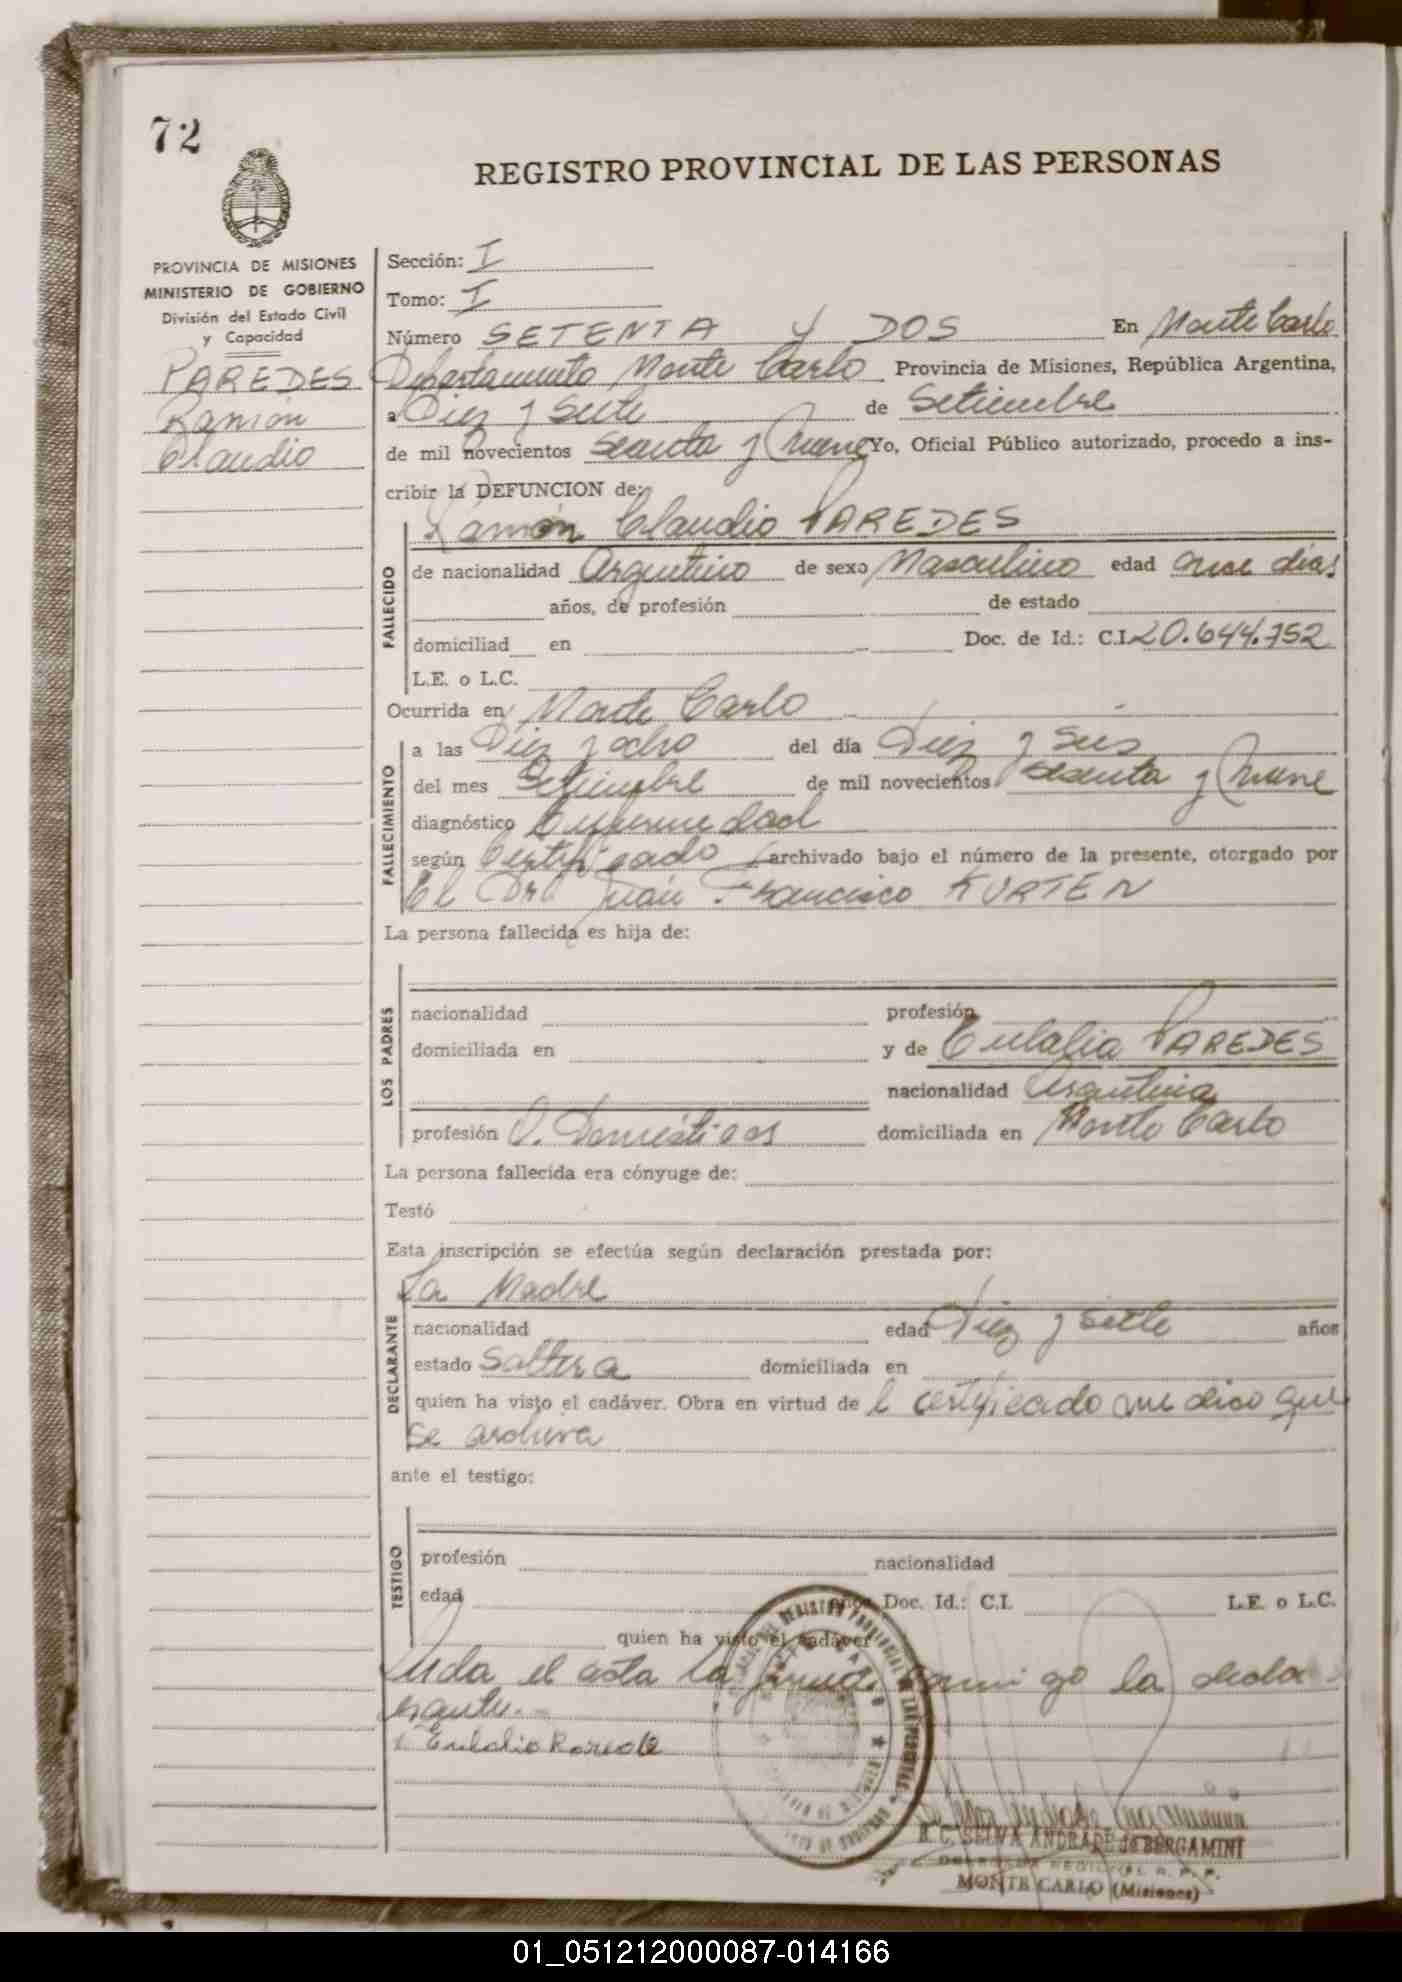 72
REGISTRO PROVINCIAL DE LAS PERSONAS
PROVINCIA DE MISIONES
MINISTERIO DE GOBIERNO
División del Estado Civil
y Capacidad
PAREDES
Ramón
Claudio
Sección: I
Tomo: I
Número SETENTA Y DOS En Monte Carlo
Departamento Monte Carlo Provincia de Misiones, República Argentina,
a Diez y Siete de Setiembre
de mil novecientos sesenta y Nueve Yo, Oficial Público autorizado, procedo a ins-
cribir la DEFUNCION de:
Ramón Claudio PAREDES
FALLECIDO
de nacionalidad Argentino de sexo Masculino edad once días
años, de profesión de estado
domiciliad en Doc. de Id.: C.I. 20.644.752
L.E. o L.C.
Ocurrida en Monte Carlo
FALLECIMIENTO
a las Diez y ocho del día Diez y Seis
del mes Setiembre de mil novecientos sesenta y Nueve
diagnóstico Enfermedad
según Certificado archivado bajo el número de la presente, otorgado por
El Dr. Juan Francisco KURTEN
La persona fallecida es hija de:
LOS PADRES
nacionalidad profesión
domiciliada en y de Eulalia PAREDES
nacionalidad Argentina
profesión Q. Domésticos domiciliada en Monte Carlo
La persona fallecida era cónyuge de:
Testó
Esta inscripción se efectúa según declaración prestada por:
La Madre
DECLARANTE
nacionalidad edad Diez y siete años
estado Soltera domiciliada en
quien ha visto el cadáver. Obra en virtud de l certificado medico que
se archiva
ante el testigo:
TESTIGO
profesión nacionalidad
edad años Doc. Id.: C.I. L.E. o L.C.
quien ha visto el cadáver
Leida el acta la firma conmigo la decla-
rante.-
R. C. SELVA ANDRADE de BERGAMINI
DELEGADA REGIONAL R. P. P.
MONTE CARLO (Misiones)
01_051212000087-014166